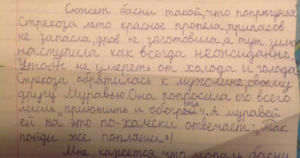 Сюжет басни такой, что попрыгунья
Стрекоза лето красное пропела, припасов
не запасла, дров не заготовила, а тут зима
наступила как всегда неожиданно.
Чтобы не умереть от холода и голода
Стрекоза обратилась к мужчине, своему
другу Муравью. Она попросила его всего
лишь "приютить и обогреть". А муравей
ей на это по-хамски отвечает: "Так
пойди же попляши"!
Мне кажется, что мораль басни